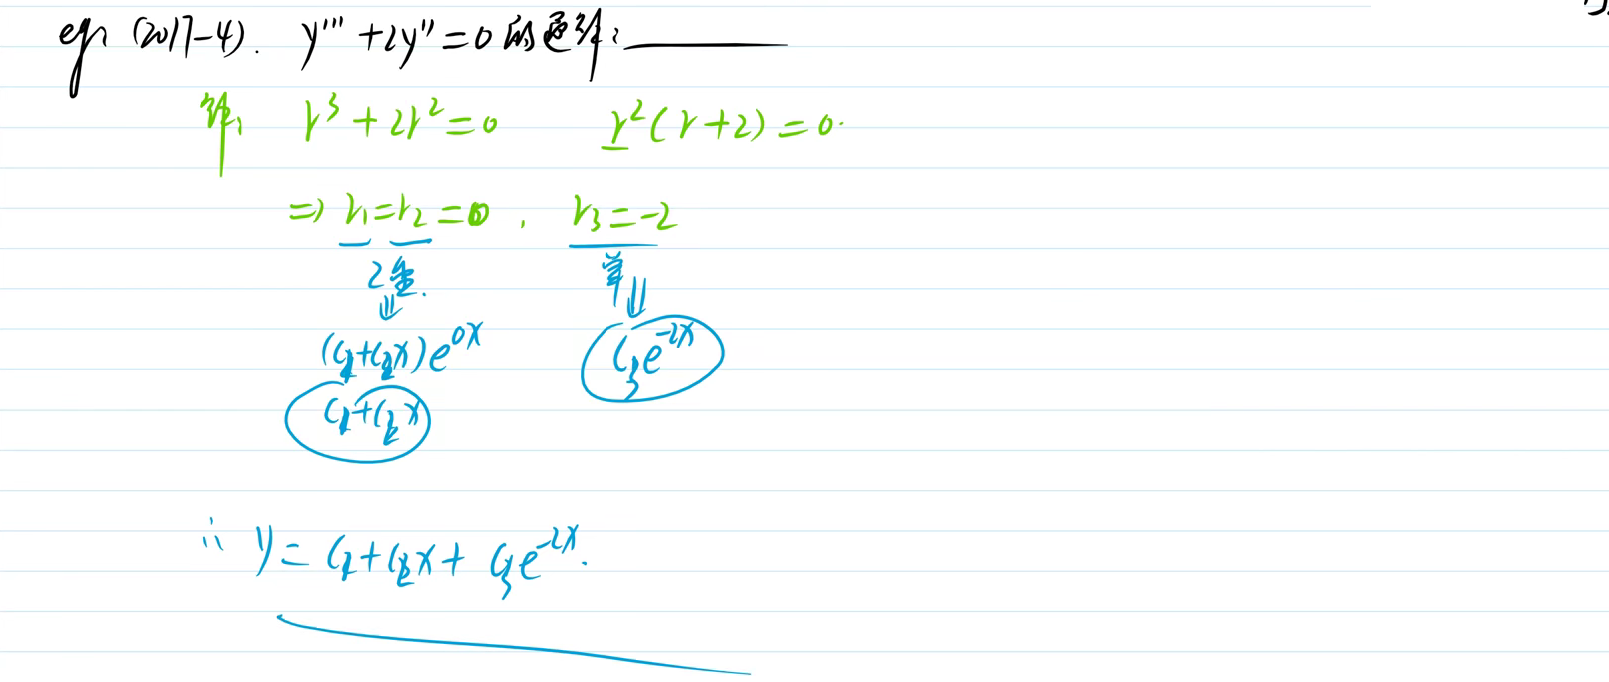 eg: (2017-4). y''' + 2y'' = 0 的通解: ______
解: r³ + 2r² = 0 r²(r+2) = 0.
⇒ r₁ = r₂ = 0 , r₃ = -2
2重. 单
⇓ ⇓
(C₁+C₂x)e^{0x} C₃e^{-2x}
C₁+C₂x
∴ y = C₁+C₂x+ C₃e^{-2x}.